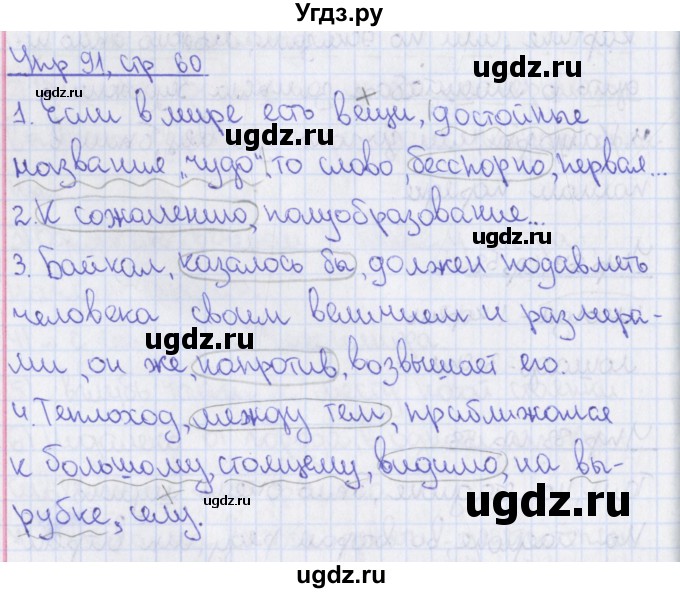 Угдз.ру
Упр 91, стр 60
1. Если в мире есть вещи, достойные
ugdz.ru
названия „чудо", то слово, бесспорно, первая...
2. К сожалению, полуобразование...
ugdz.ru
3. Байкал, казалось бы, должен подавлять
человека своим величием и размера-
ugdz.ru
ми, он же, напротив, возвышает его.
4. Теплоход, между тем, приближался
ugdz.ru
к большому, стоящему, видимо, на вы-
ugdz.ru
рубке, селу.
ugdz.ru
ugdz.ru